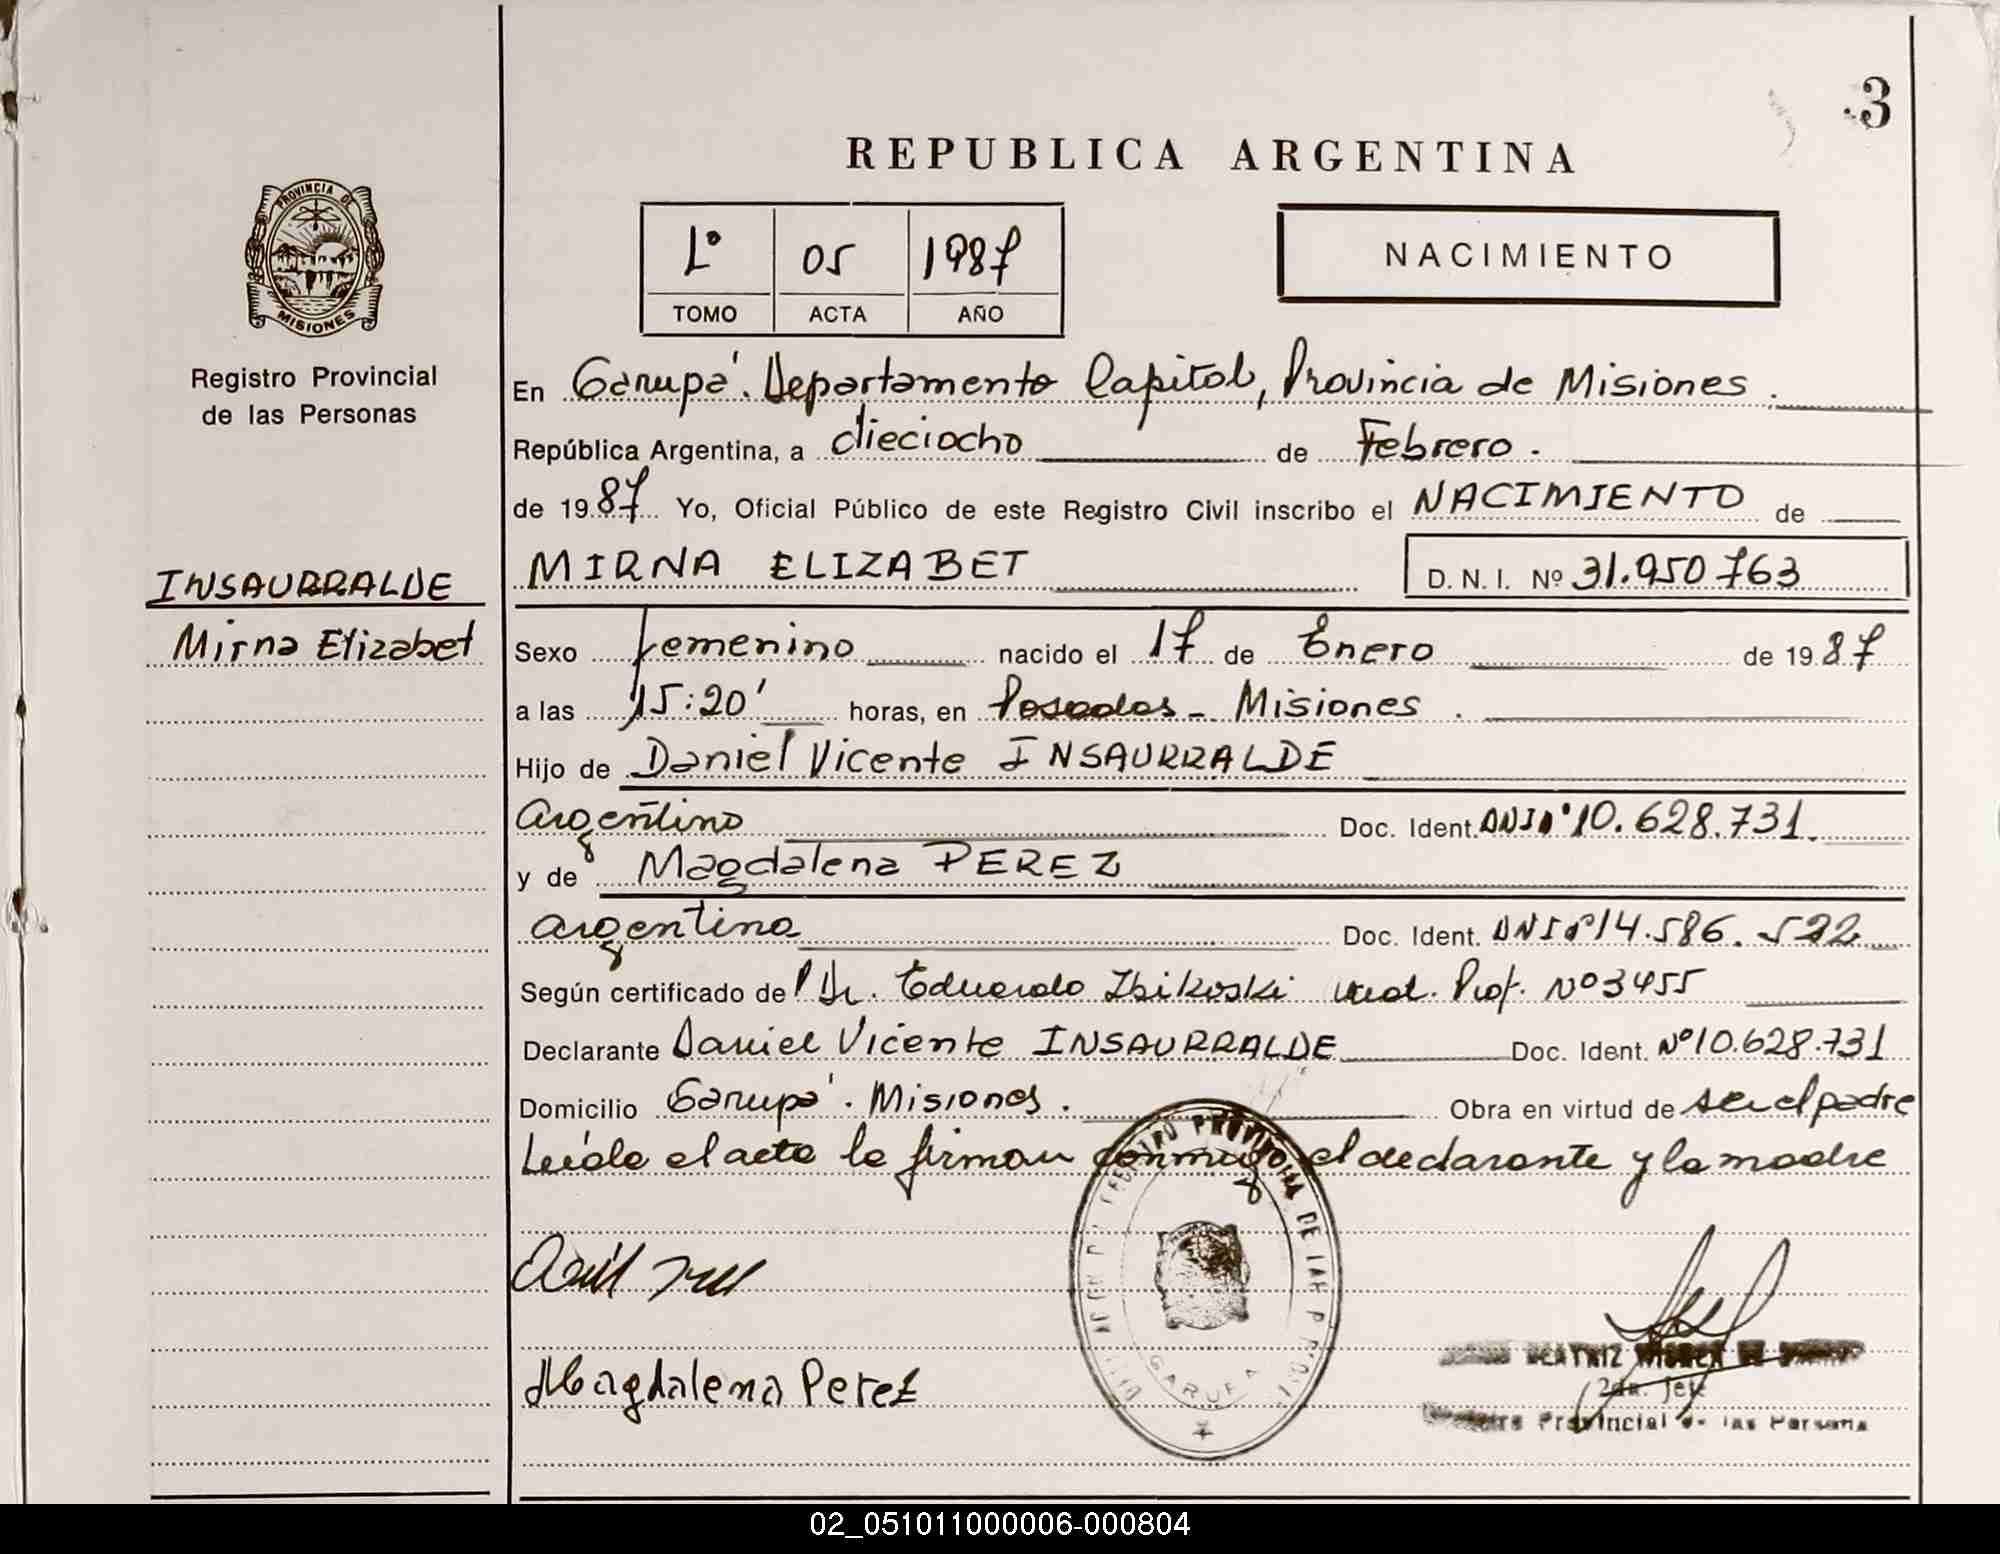 3
REPUBLICA ARGENTINA
PROVINCIA DE
MISIONES
1º 05 1987
TOMO ACTA AÑO
NACIMIENTO
Registro Provincial
de las Personas
En Garupá. Departamento Capital, Provincia de Misiones.
República Argentina, a dieciocho de Febrero.
de 1987 Yo, Oficial Público de este Registro Civil inscribo el NACIMIENTO de
MIRNA ELIZABET D. N. I. Nº 31.950.763
INSAURRALDE
Mirna Elizabet
Sexo femenino nacido el 17 de Enero de 1987
a las 15:20' horas, en Posadas - Misiones.
Hijo de Daniel Vicente INSAURRALDE
argentino Doc. Ident. DNI Nº 10.628.731.
y de Magdalena PEREZ
argentina Doc. Ident. DNI Nº 14.586.522
Según certificado de Dr. Eduardo Zbikoski Prof. Nº 3455
Declarante Daniel Vicente INSAURRALDE Doc. Ident. Nº 10.628.731
Domicilio Garupá. Misiones. Obra en virtud de ser el padre
Leída el acta la firman conmigo el declarante y la madre
REGISTRO PROVINCIAL DE LAS P
GARUPA
Magdalena Perez
BEATRIZ
2da. Jefe
Provincial de las Persona
02_051011000006-000804